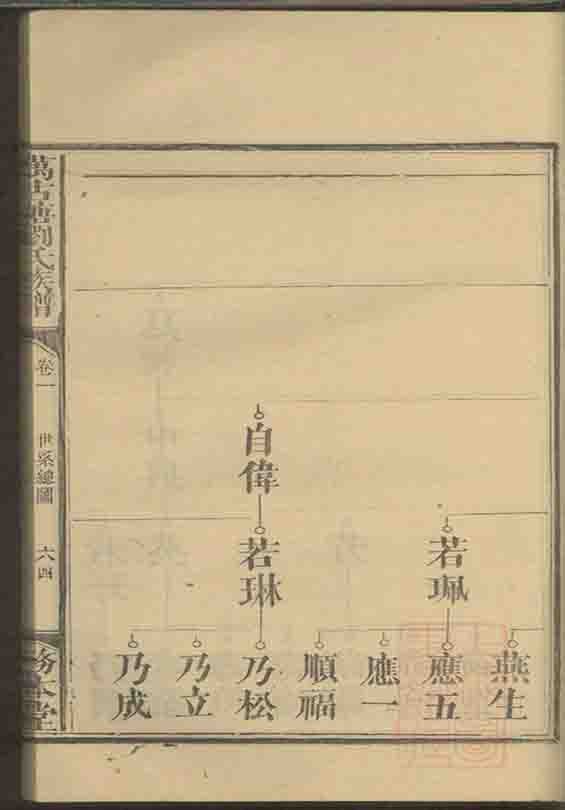 萬古塘劉氏族譜
卷一
世系總圖
六四
務本堂
自偉
若珮
若琳
燕生
應五
應一
順福
乃松
乃立
乃成